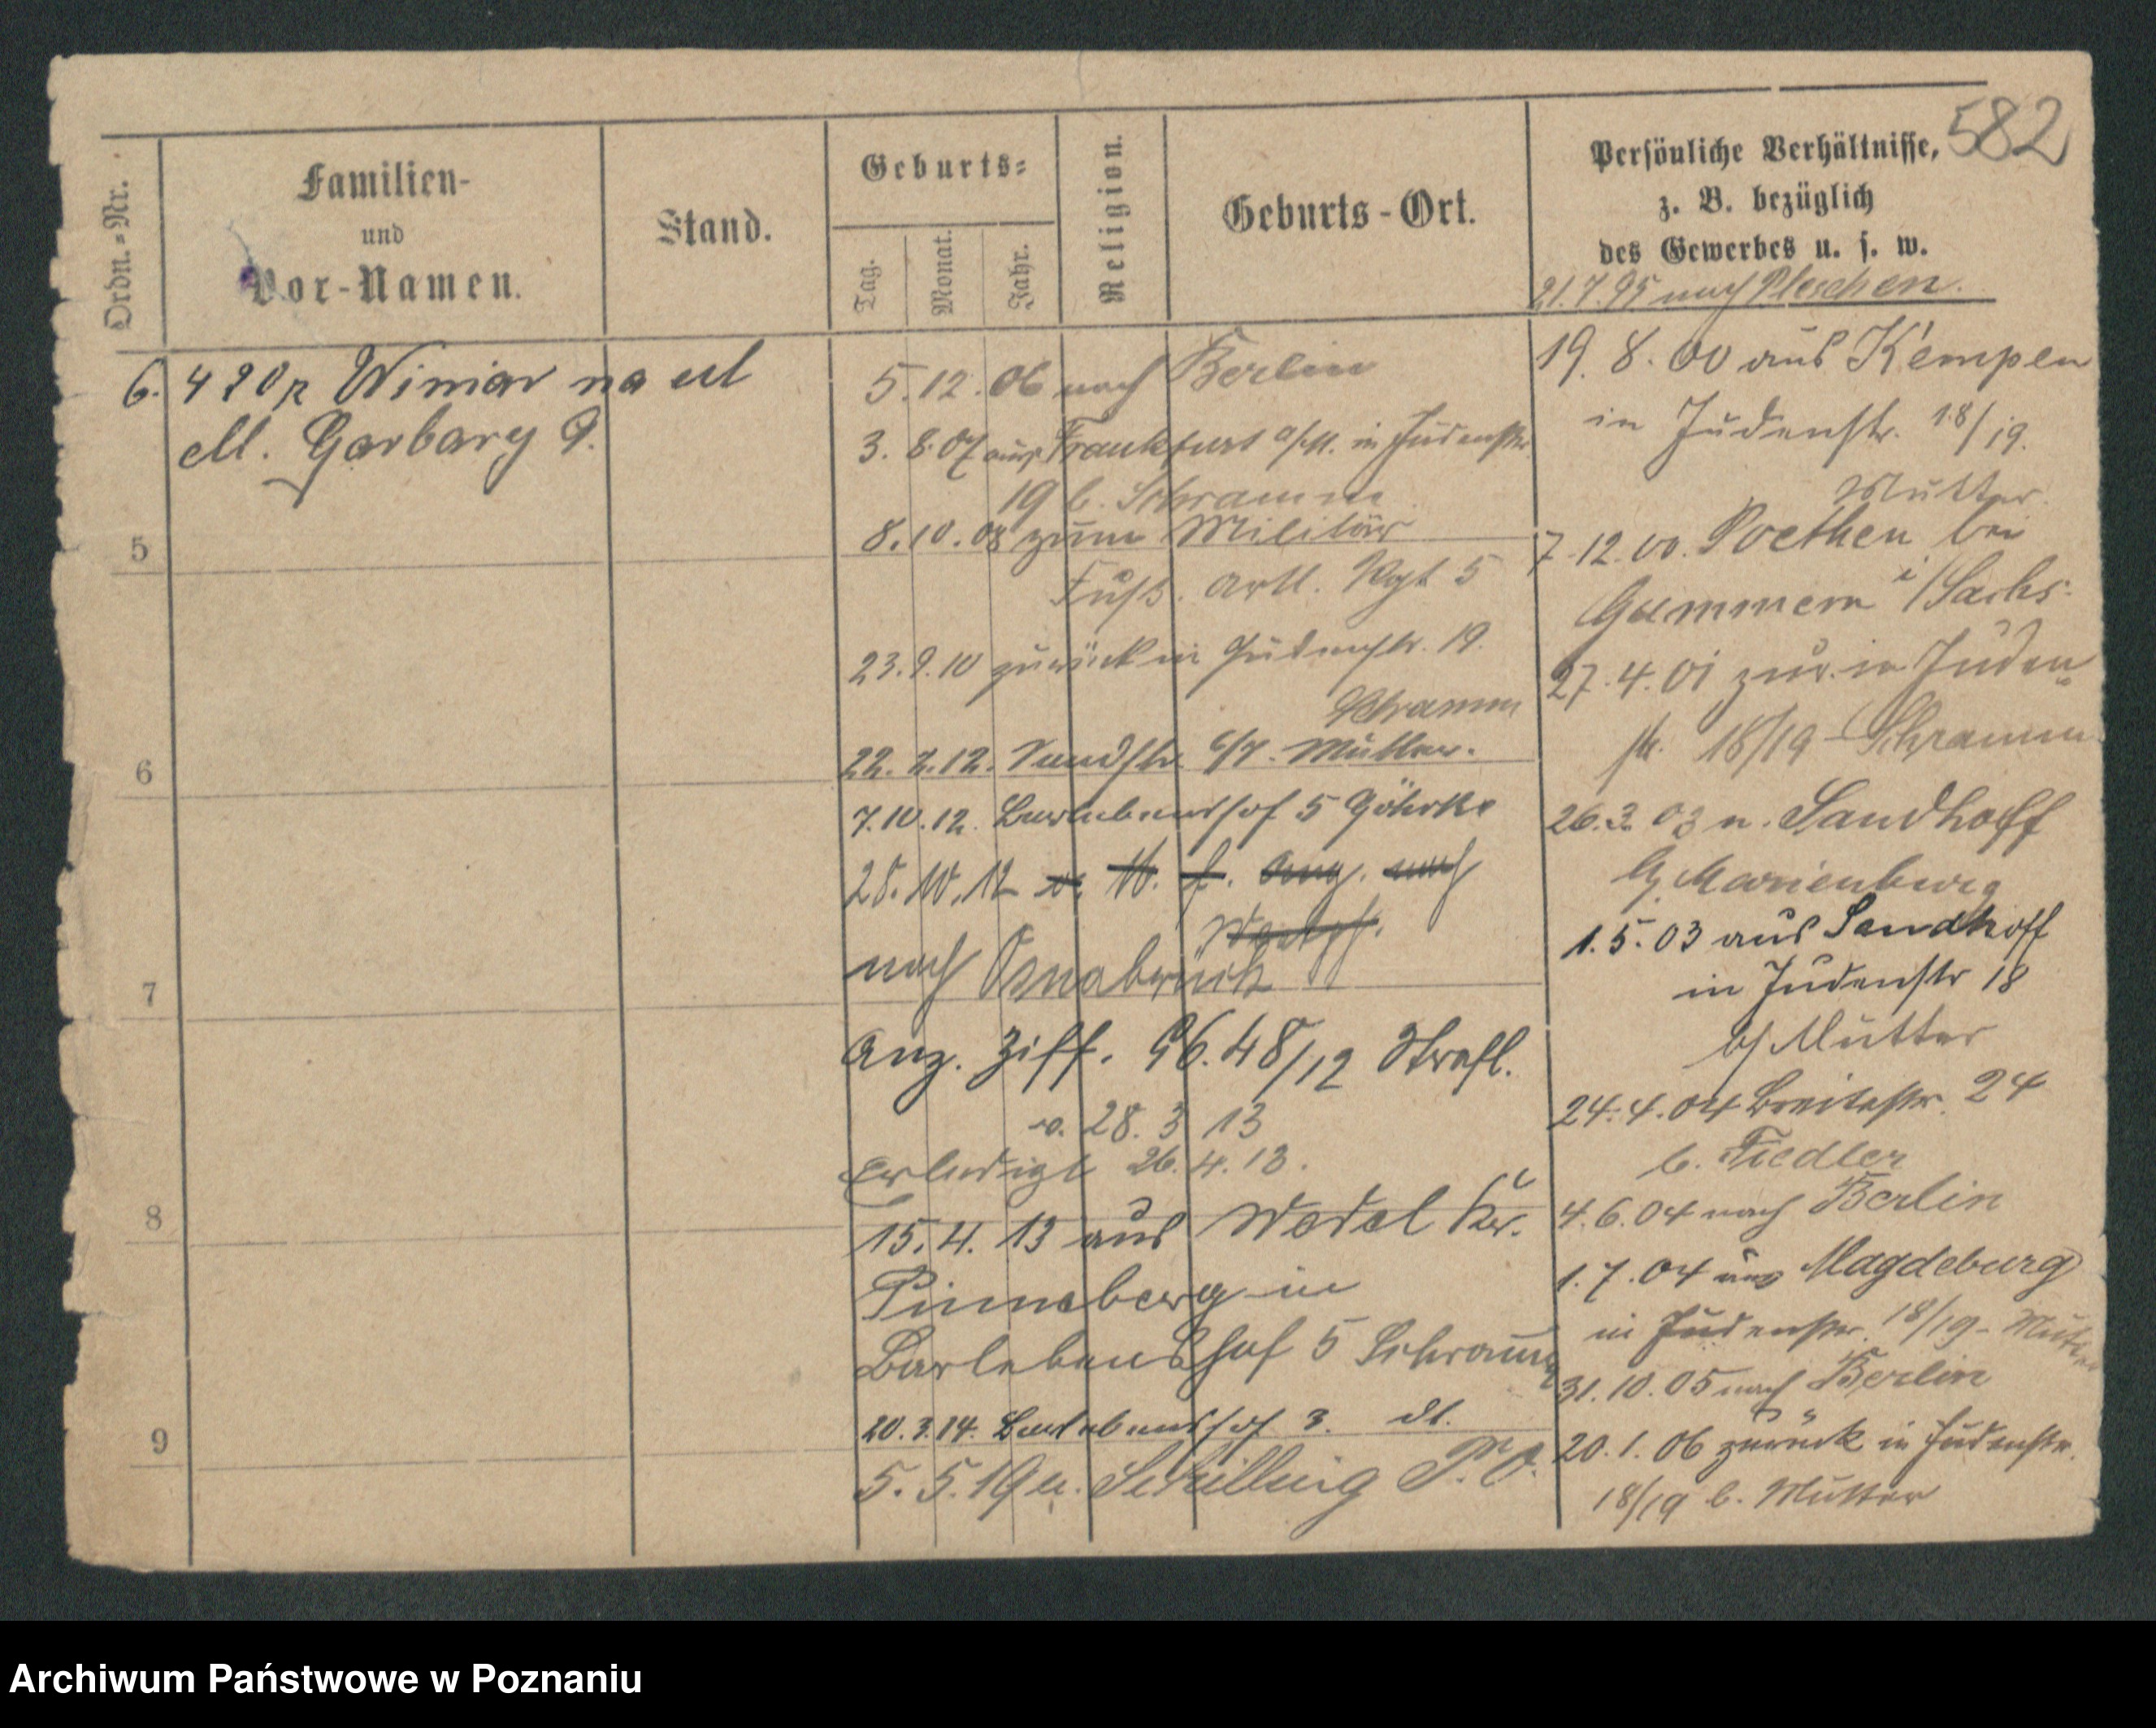 582
Ordn.-Nr.
Familien-
und
Vor-Namen.
Stand.
Geburts-
Tag.
Monat.
Jahr.
Religion.
Geburts-Ort.
Persönliche Verhältnisse,
z. B. bezüglich
des Gewerbes u. s. w.
21.7.95 nach Pleschen.
6. 4 20 na ul
Garbary 9.
5
6
7
8
9
5.12.06 nach Berlin
3. 8. 07 aus Frankfurt a/M. in Judenstr.
19 b. Schramm
8.10.08 zum Militär
Fuß. Artl. Rgt 5
23.9.10 zurück in Judenstr. 19.
Schramm
22. 2.12. 6/7. Mutter.
7.10.12. Barlebenshof 5
28.10.12 v. f. Ang. nach
nach Osnabrück
Anz. Ziff. 96.48/12 Strafl.
v. 28. 3 13
Erledigt 26. 4. 13.
15. 4. 13 aus Wedel Kr.
Pinneberg in
Barlebenshof 5 Schramm
20. 3.14. Barlebenshof 3.
5. 5. 19 u. Schilling
19. 8. 00 aus Kempen
in Judenstr. 18/19.
Mutter
7.12.00. Poethen bei
Gommern i/Sachs.
27.4.01 zur. in Juden-
str. 18/19 Schramm
26.3.03 n. Sandhoff
b/Marienburg
1.5.03 aus Sandhoff
in Judenstr 18
b/Mutter
24.4.04 Breitestr. 24
b. Fiedler
4.6.04 nach Berlin
1.7.04 aus Magdeburg
in Judenstr. 18/19 - Mutter
31.10.05 nach Berlin
20.1.06 zurück in Judenstr.
18/19 b. Mutter
Archiwum Państwowe w Poznaniu